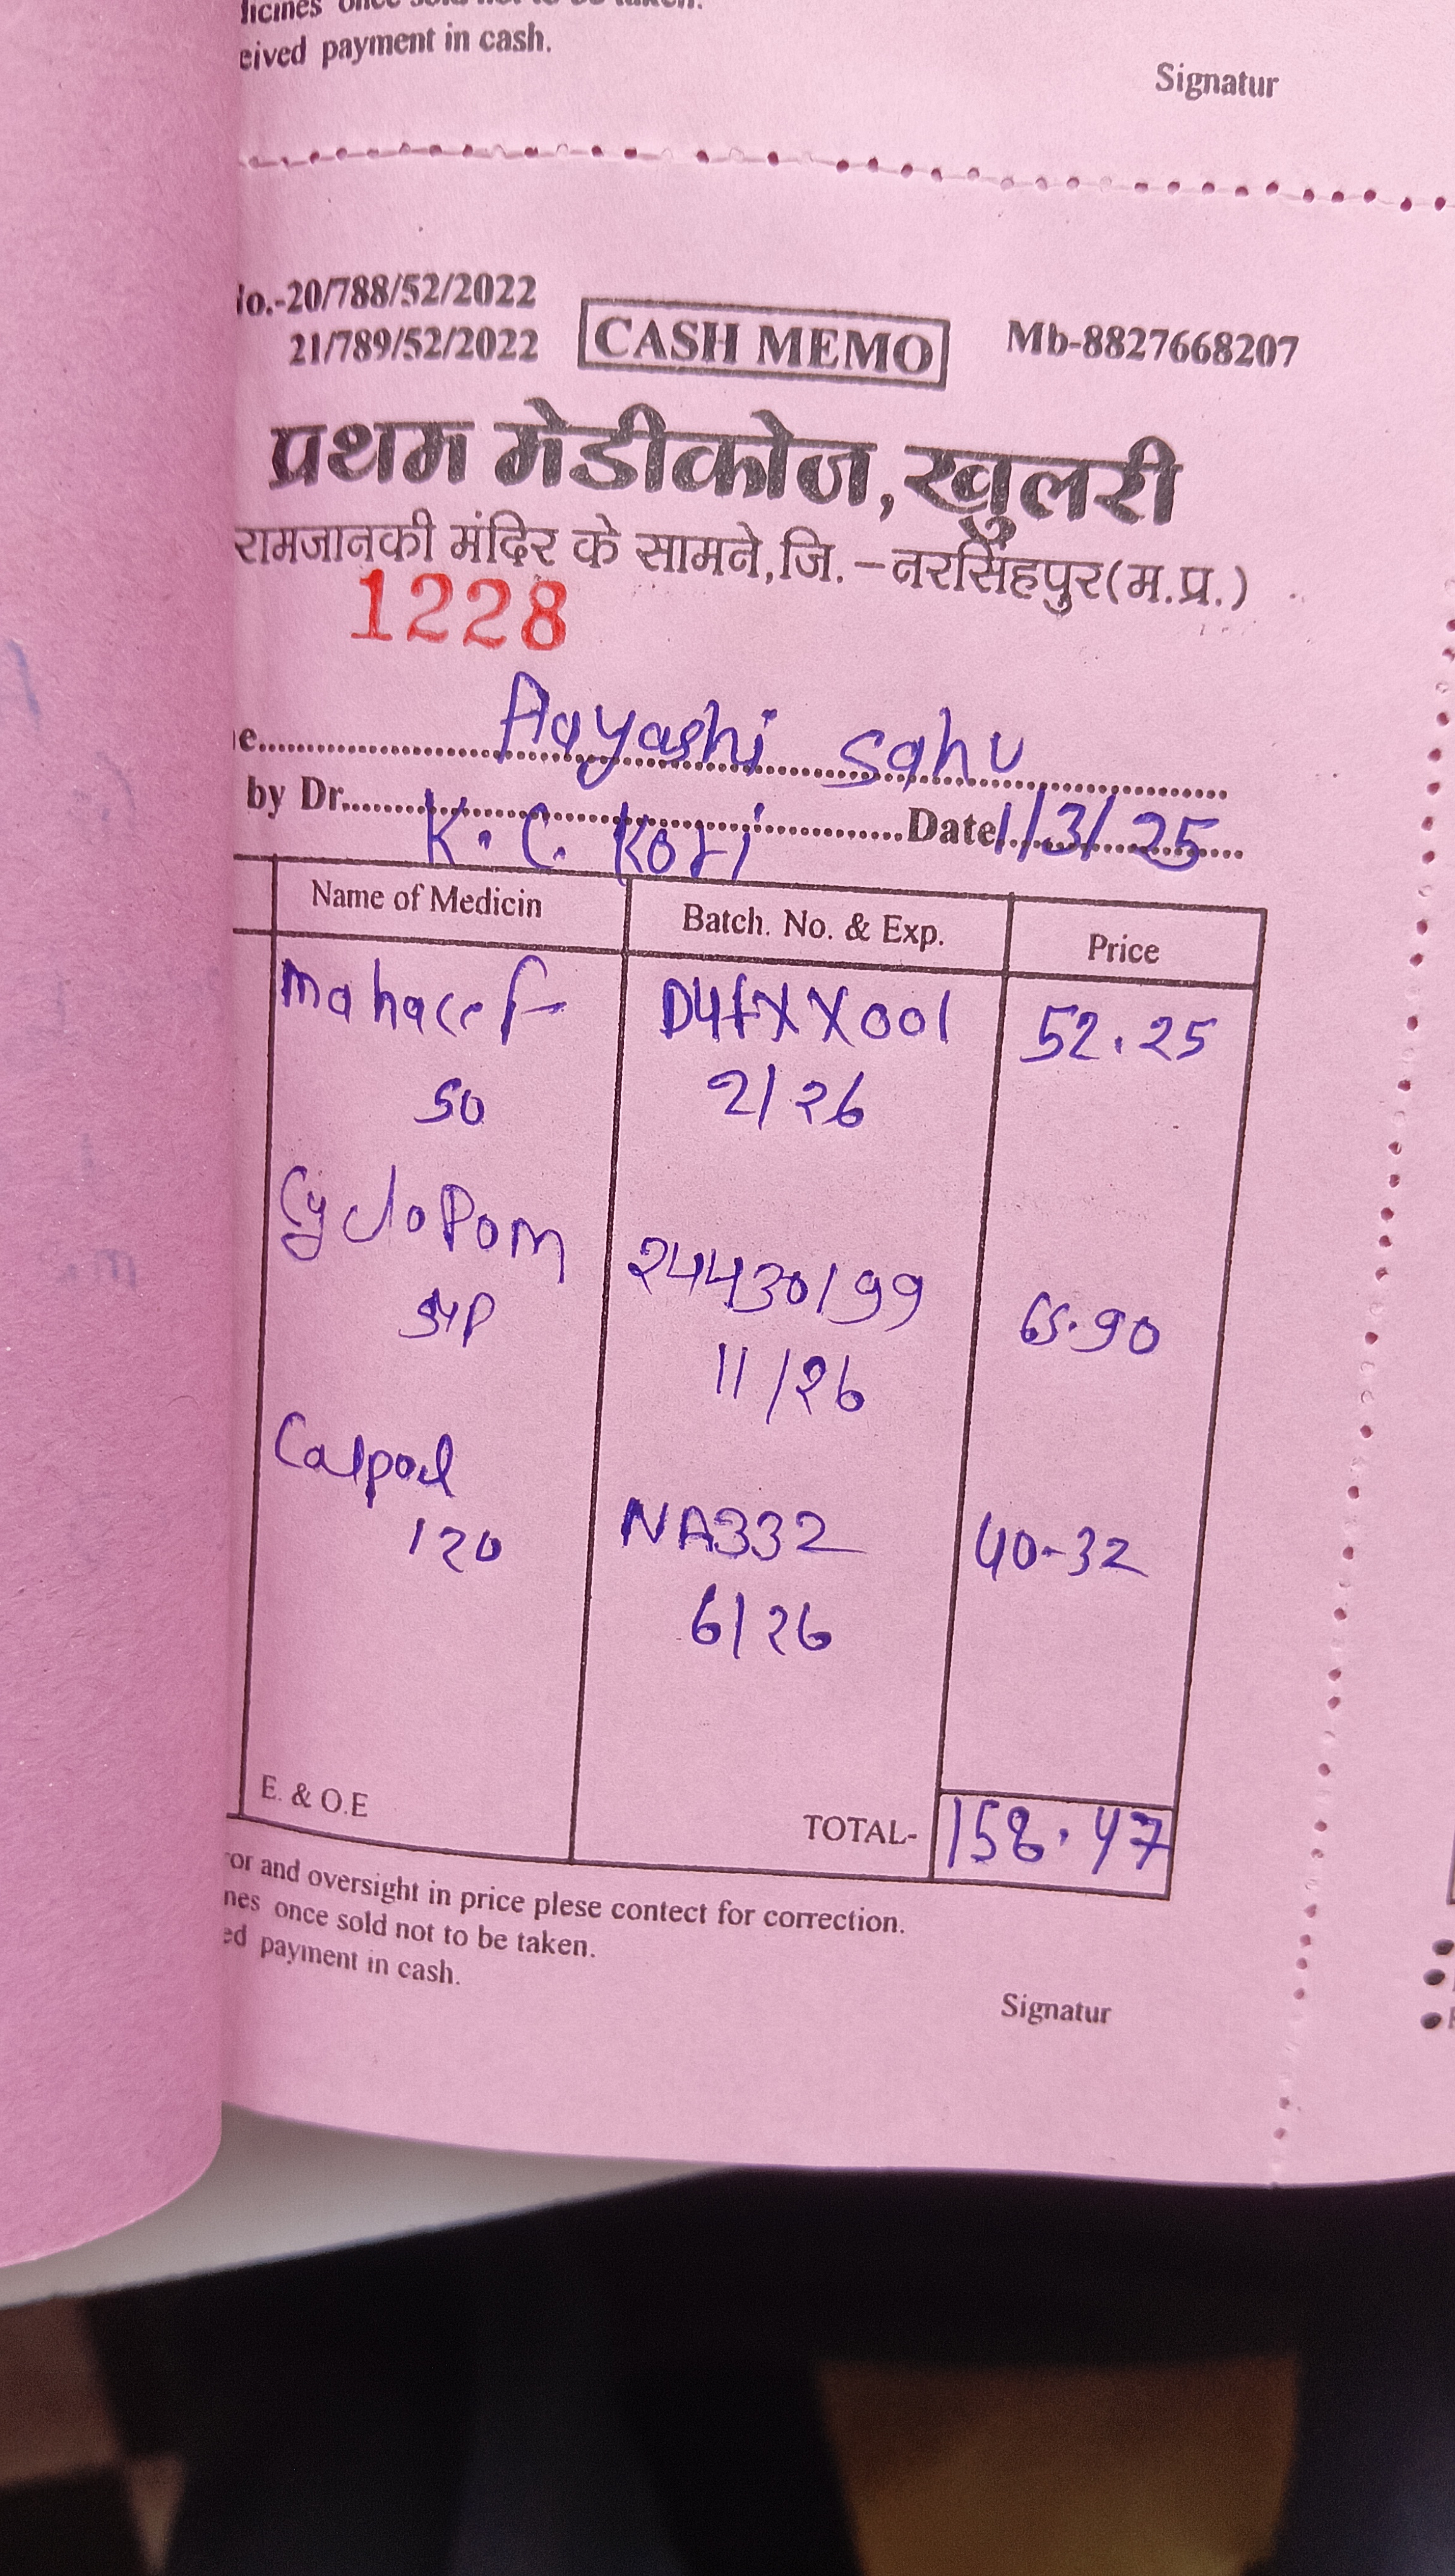 dicines once sold not to be taken.
eived payment in cash.
Signatur
No.-20/788/52/2022
21/789/52/2022
CASH MEMO
Mb-8827668207
प्रथम मेडीकोज, खुलरी
रामजानकी मंदिर के सामने, जि. - नरसिंहपुर (म.प्र.)
1228
e.......... Aayashi Sahu
by Dr.......... K. C. Kori Date 1/3/25
Name of Medicin Batch. No. & Exp. Price
Mahacef D4FXX001 52.25
50 2/26
Cyclopam 24430199 65.90
syp 11/26
Calpol NA332 40-32
120 6/26
E. & O.E TOTAL- 158.47
ror and oversight in price plese contect for correction.
nes once sold not to be taken.
ed payment in cash.
Signatur